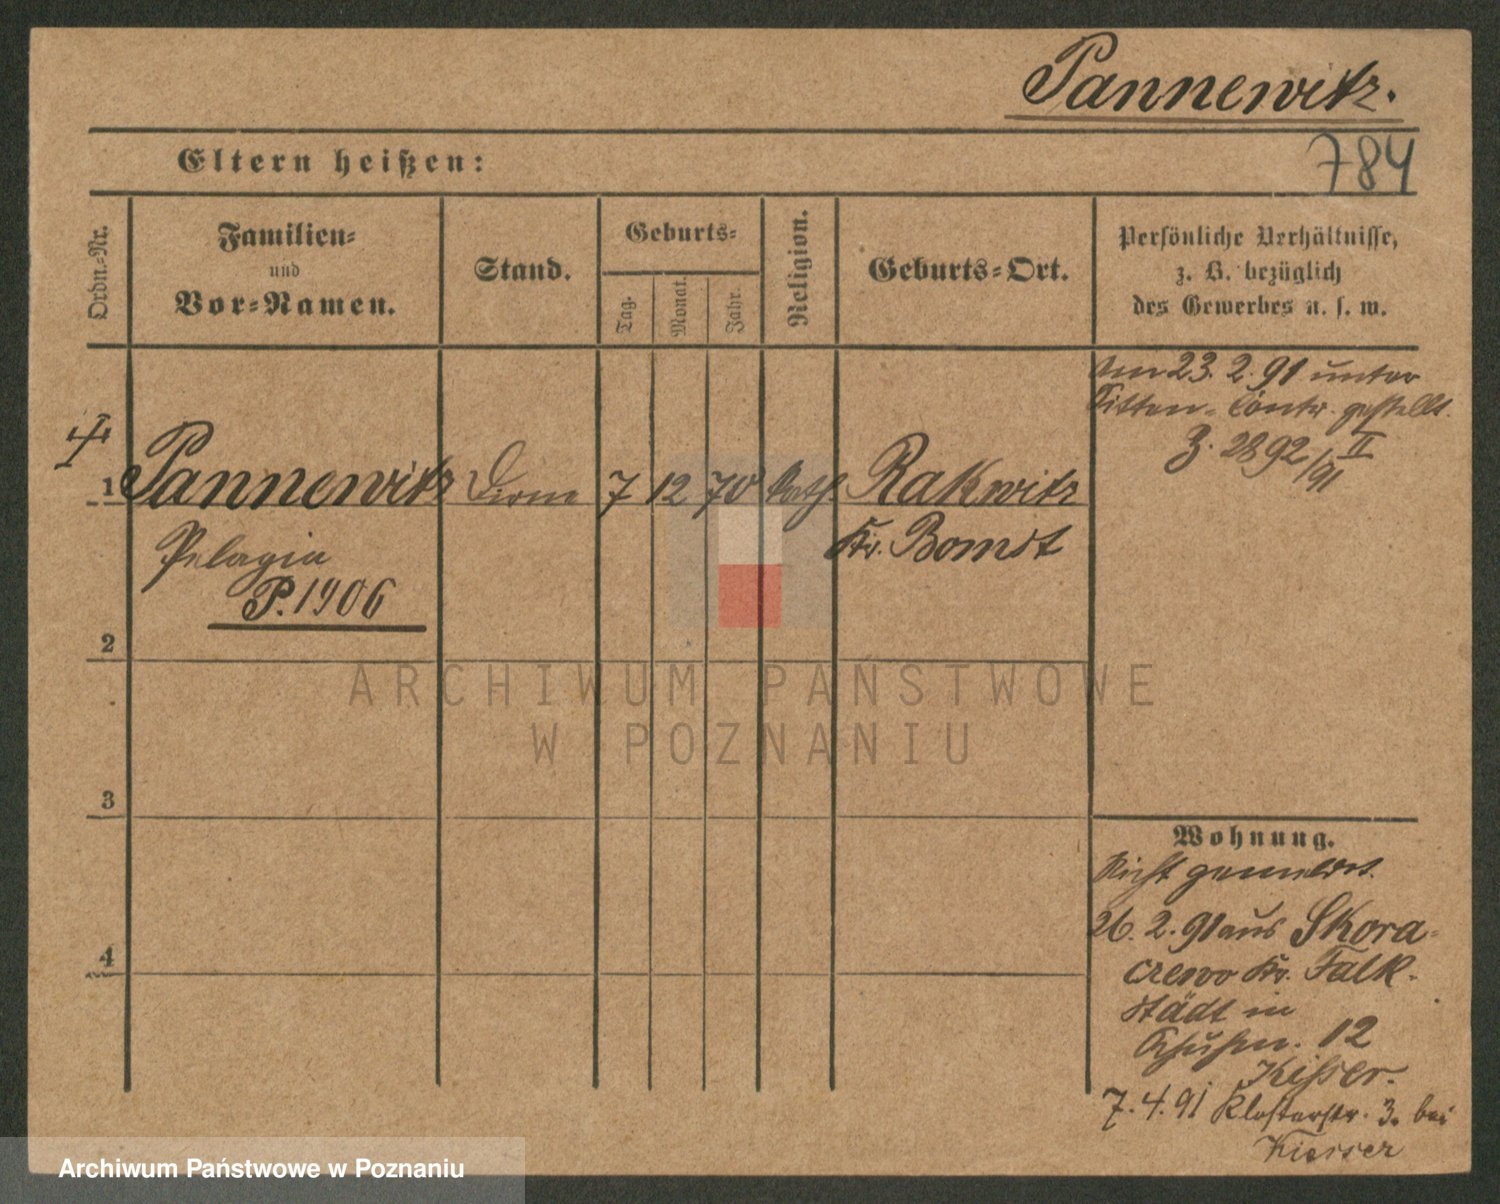 Pannewitz.
Eltern heißen:
784
Ordn.-Nr.
Familien-
und
Vor-Namen.
Stand.
Geburts-
Tag.
Monat.
Jahr.
Religion.
Geburts-Ort.
Persönliche Verhältnisse,
z. B. bezüglich
des Gewerbes u. s. w.
Am 23. 2. 91 unter
Sitten-Contr. gestellt.
J. 2892/91 II
1 Pannewitz Dirne 7 12 70 kath. Rakwitz
Pelagia Kr. Bomst
P. 1906
2
3
4
Wohnung.
Nicht gemeldet.
26. 2. 91 aus Skora-
czewo Kr. Falk-
städt in
12
7. 4. 91 Klosterstr. 3. bei
ARCHIWUM PAŃSTWOWE
W POZNANIU
Archiwum Państwowe w Poznaniu